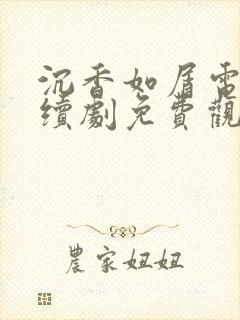 沉香如屑電
續劇免費觀
農家妞妞